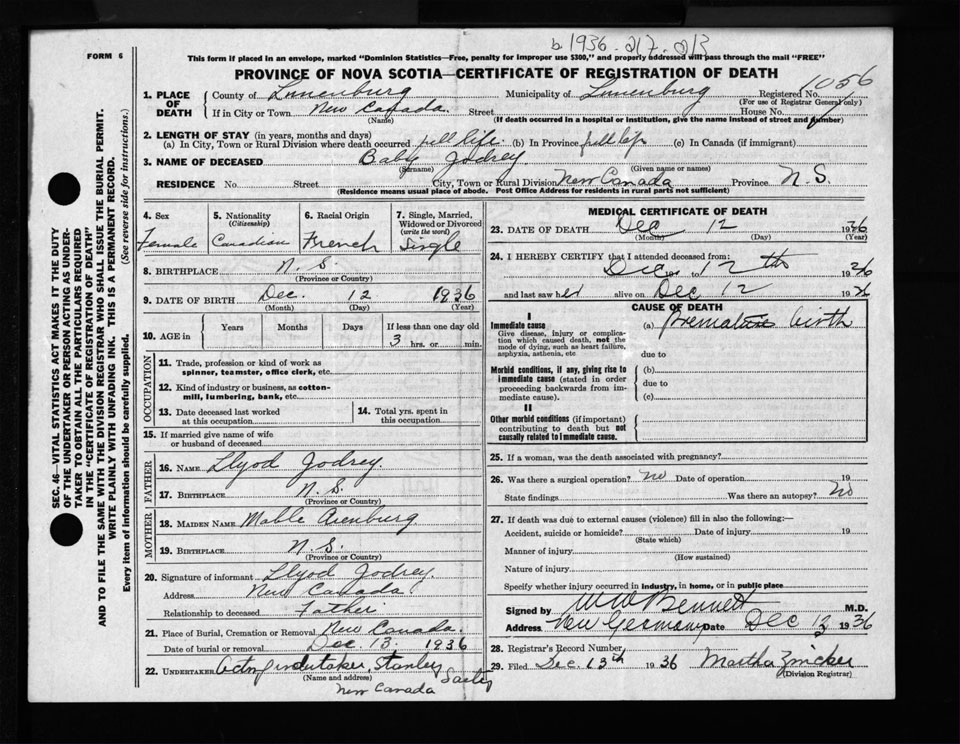 b 1936. 217. 213
FORM 6
This form if placed in an envelope, marked "Dominion Statistics—Free, penalty for improper use $300," and properly addressed will pass through the mail "FREE"
PROVINCE OF NOVA SCOTIA—CERTIFICATE OF REGISTRATION OF DEATH
1. PLACE OF DEATH County of Lunenburg Municipality of Lunenburg Registered No. 1056
(For use of Registrar General only)
If in City or Town New Canada Street House No.
(Name) (If death occurred in a hospital or institution, give the name instead of street and number)
2. LENGTH OF STAY (in years, months and days)
(a) In City, Town or Rural Division where death occurred full life (b) In Province full life (c) In Canada (if immigrant)
3. NAME OF DECEASED Baby Jodrey
(Surname) (Given name or names)
RESIDENCE No. Street City, Town or Rural Division New Canada Province N.S.
(Residence means usual place of abode. Post Office Address for residents in rural parts not sufficient)
4. Sex Female
5. Nationality (Citizenship) Canadian
6. Racial Origin French
7. Single, Married, Widowed or Divorced (write the word) Single
8. BIRTHPLACE N.S.
(Province or Country)
9. DATE OF BIRTH Dec. 12 1936
(Month) (Day) (Year)
10. AGE in Years Months Days If less than one day old
3 hrs. or min.
OCCUPATION
11. Trade, profession or kind of work as spinner, teamster, office clerk, etc.
12. Kind of industry or business, as cotton-mill, lumbering, bank, etc.
13. Date deceased last worked at this occupation
14. Total yrs. spent in this occupation
15. If married give name of wife or husband of deceased
FATHER
16. NAME Llyod Jodrey.
17. BIRTHPLACE N.S.
(Province or Country)
MOTHER
18. MAIDEN NAME Mable Arenburg
19. BIRTHPLACE N.S.
(Province or Country)
20. Signature of informant Llyod Jodrey.
Address New Canada
Relationship to deceased Father
21. Place of Burial, Cremation or Removal New Canada
Date of burial or removal Dec. 13. 1936
22. UNDERTAKER Acting undertaker, Stanley
(Name and address)
New Canada
MEDICAL CERTIFICATE OF DEATH
23. DATE OF DEATH Dec 12 1936
(Month) (Day) (Year)
24. I HEREBY CERTIFY that I attended deceased from:
Dec to 12th 1936
and last saw her alive on Dec 12 1936
CAUSE OF DEATH
I
Immediate cause (a) Premature birth
Give disease, injury or complication which caused death, not the mode of dying, such as heart failure, asphyxia, asthenia, etc
due to
Morbid conditions, if any, giving rise to immediate cause (stated in order proceeding backwards from immediate cause).
(b)
due to
(c)
II
Other morbid conditions (if important) contributing to death but not causally related to immediate cause.
25. If a woman, was the death associated with pregnancy?
26. Was there a surgical operation? no Date of operation 19
State findings Was there an autopsy? no
27. If death was due to external causes (violence) fill in also the following:—
Accident, suicide or homicide? Date of injury 19
(State which)
Manner of injury
(How sustained)
Nature of injury
Specify whether injury occurred in industry, in home, or in public place
Signed by W W Bennett M.D.
Address New Germany Date Dec 13 1936
28. Registrar's Record Number
29. Filed Dec. 13th 1936 Martha Zwicker
(Division Registrar)
SEC. 46—VITAL STATISTICS ACT MAKES IT THE DUTY
OF THE UNDERTAKER OR PERSON ACTING AS UNDER-
TAKER TO OBTAIN ALL THE PARTICULARS REQUIRED
IN THE "CERTIFICATE OF REGISTRATION OF DEATH"
AND TO FILE THE SAME WITH THE DIVISION REGISTRAR WHO SHALL ISSUE THE BURIAL PERMIT.
WRITE PLAINLY WITH UNFADING INK. THIS IS A PERMANENT RECORD.
Every item of information should be carefully supplied. (See reverse side for instructions.)